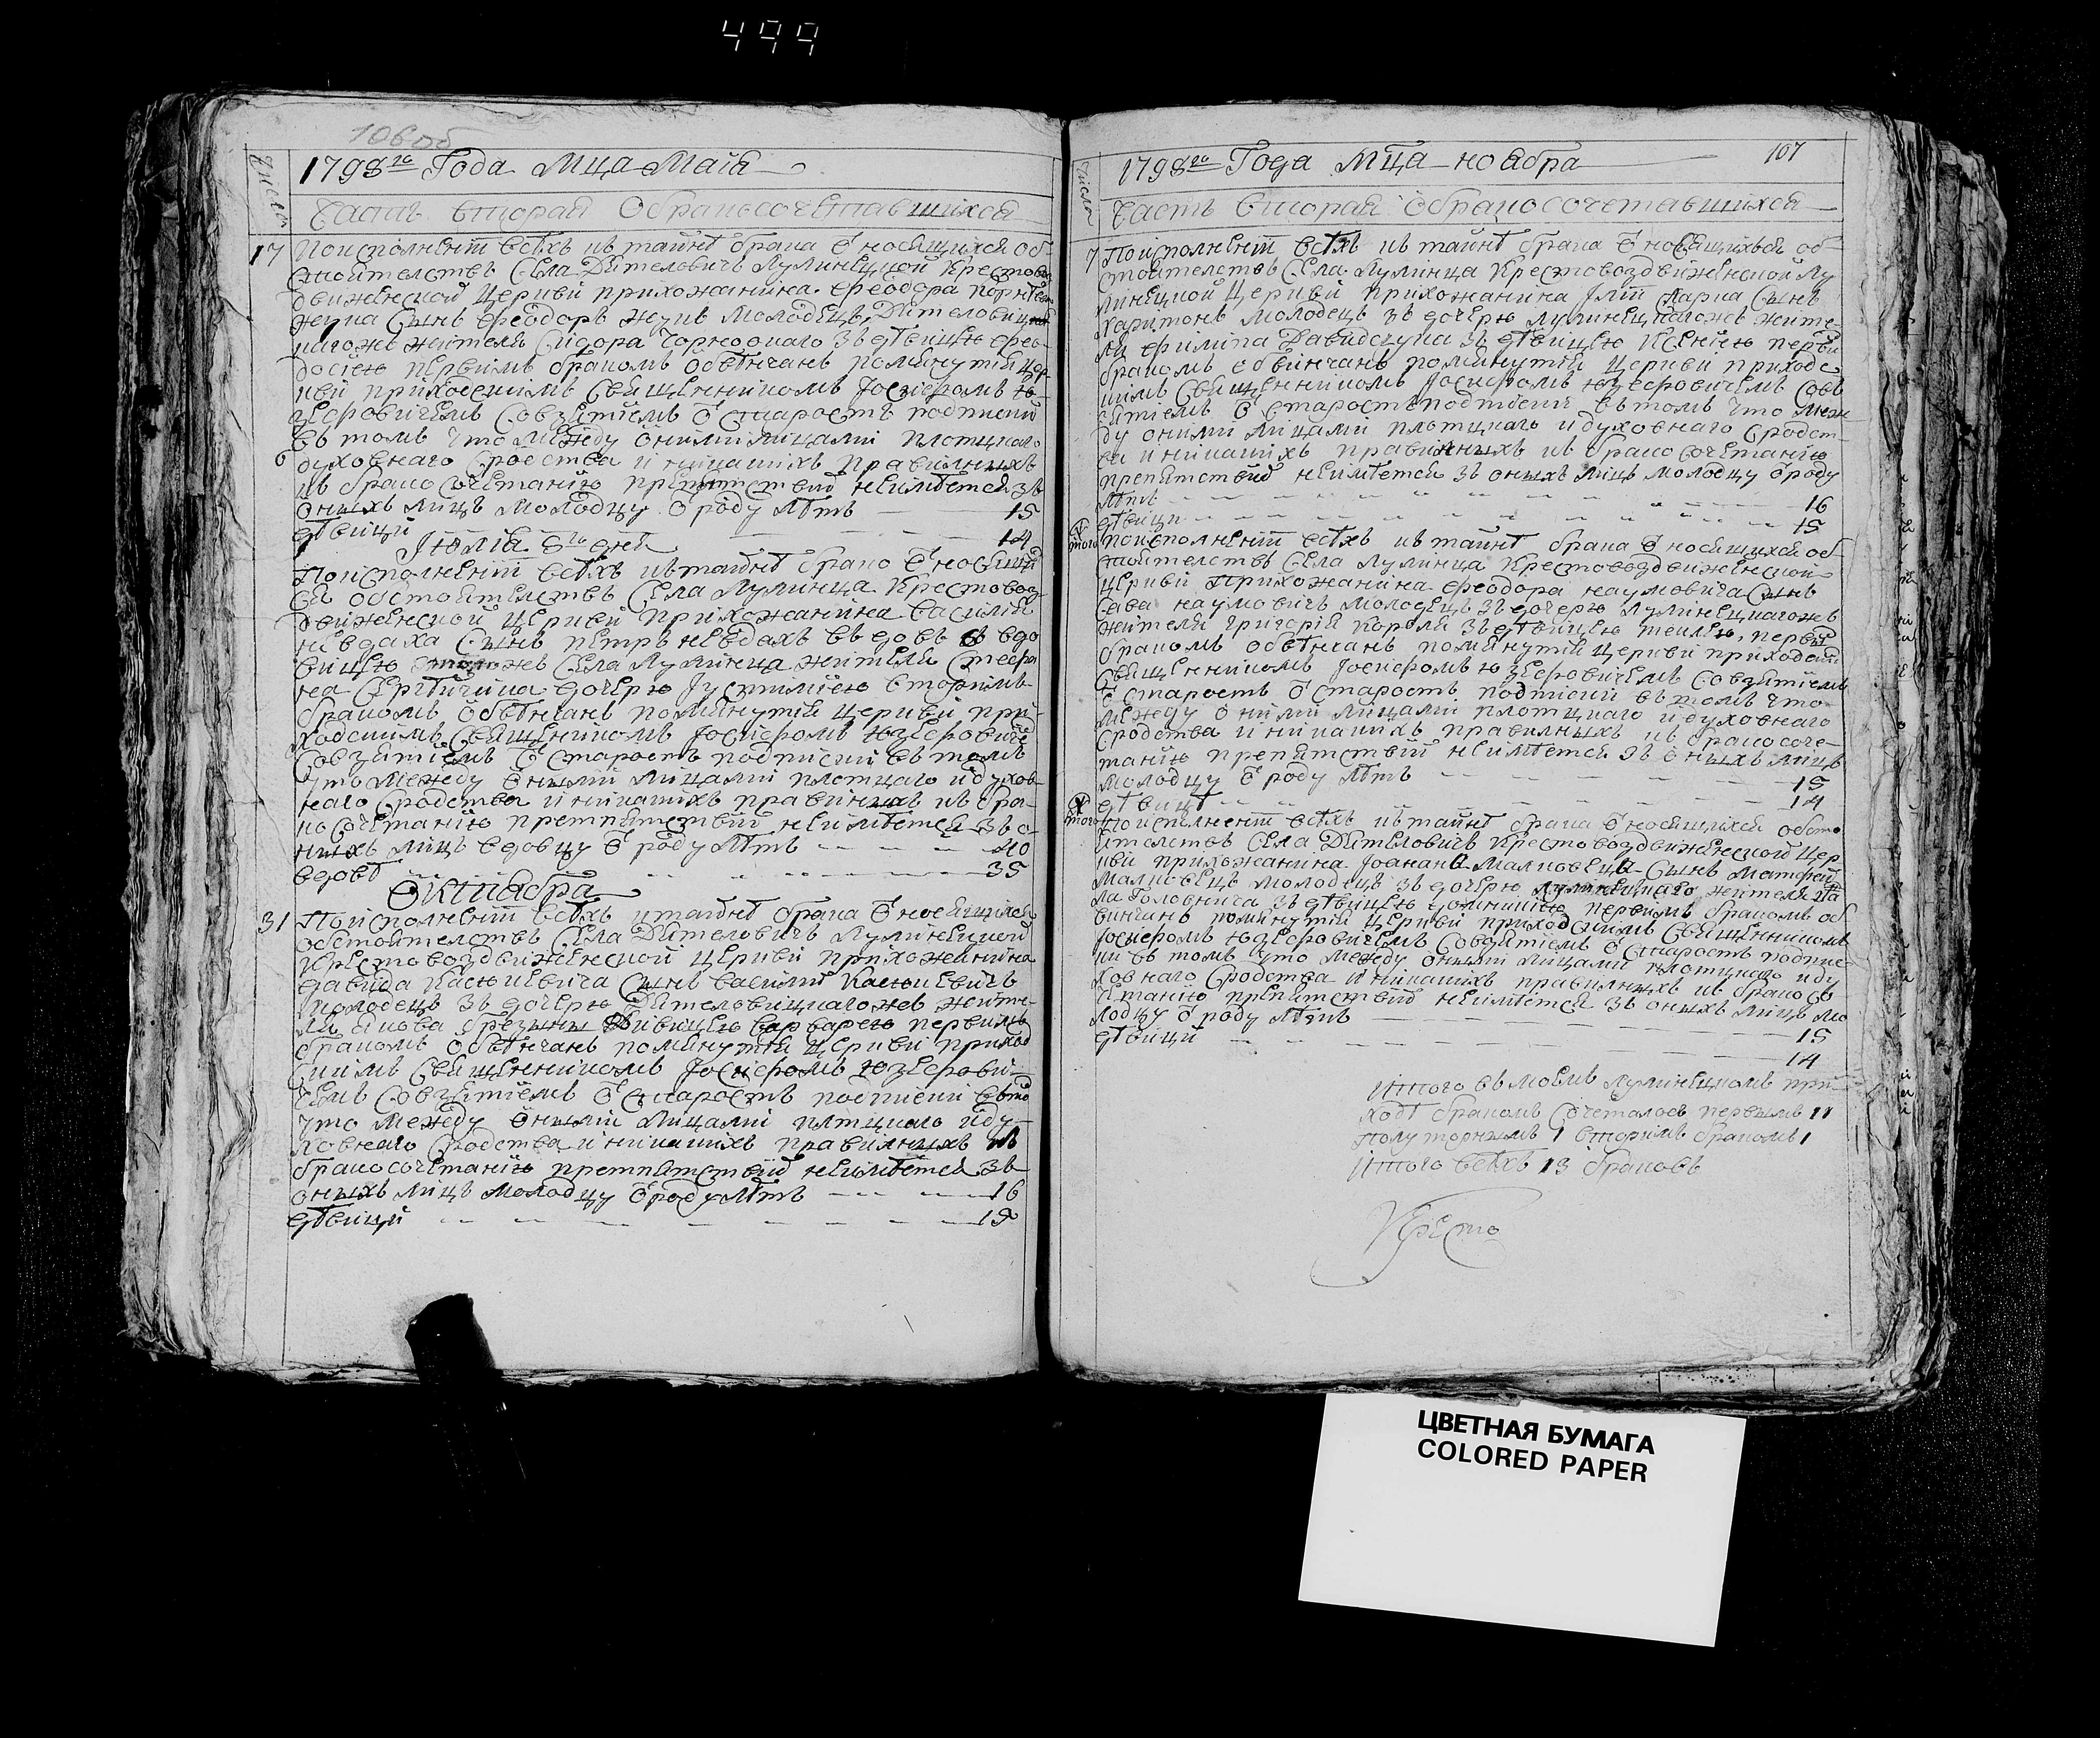 499
106 об
Число
1798го Года Мца Маія
Часть вторая Обраносочетавшихся
17 Поисполненіи всѣхъ къ тайнѣ брака Ѿносящихся об-
стоятелствъ Села Дятеловичъ Лулинецкой Крестовоз
движенской Церкви прихожанина Феодора
жука Сынъ Феодоръ жукъ Молодецъ Дятелович
кагожъ жителя Сидора Чорноокаго зъ дѣвицею Фео
досіею первымъ бракомъ обвѣнчанъ помянутія цер
кви приходскимъ Священникомъ Іосифомъ Ю-
зефовичемъ Совзятіемъ Ѿ старостъ подписки
въ томъ что между оними лицами плотцкаго
6 духовнаго Сродства и никакихъ правилныхъ
къ брако Сочетанію препятствій неимѣется зъ
оныхъ лицъ молодцу Ѿ роду лѣтъ 15
дѣвици 14
Іюлія 6го дня
Поисполненіи всѣхъ къ тайнѣ брака Ѿносящи
ся обстоятелствъ Села Лулинца Крестовоз
движенской Церкви прихожанина Василія
невдаха Сынъ петръ невдахъ вдовъ въ вдо
вицею тогожъ Села Лулинца жителя Стефа
на дочерю Іустиміею вторимъ
бракомъ обвѣнчанъ помянутія церкви при
ходскимъ Священникомъ Іосифомъ Юзефовиче
Совзятіемъ Ѿ Старостъ подписки въ томъ
что между оными лицами плотцкаго и духов
наго Сродства и никакихъ правилныхъ къ бра-
ко Сочетанію препятствій неимѣется зъ о-
ныхъ лицъ вдовцу Ѿ роду лѣтъ 40
вдовѣ 35
Октиабра
31 Поисполненіи всѣхъ к тайнѣ брака Ѿносящихся
обстоятелствъ Села Дятеловичъ Лулинецкой
Крестовоздвиженской церкви прихожанина
давида Касюкевича Сынъ василій Касюкевичъ
молодецъ зъ дочерю Дятеловицкагожъ жите-
ля якова дивицею варварею первимъ
бракомъ Обвѣнчанъ помянутія церкви приход
скимъ Священникомъ Іосифомъ Юзефови-
чемъ Совзятіемъ Ѿ Старостъ подписки въто
что между оными лицами плтцкаго и ду-
ховнаго Сродства и никакихъ правилныхъ къ
бракосочетанію препятствій неимѣется зъ
оныхъ лицъ молодцу Ѿроду лѣтъ 16
дѣвици 15
Число
1798го Года Мца ноября 107
Часть вторая Обракосочетавшихся
7 Поисполненіи всѣхъ къ тайнѣ брака Ѿносящихся об-
стоятелствъ Села Лулинца Крестовоздвиженской Лу
линецкой Церкви прихожанина Сынъ
харитонъ молодецъ зъ дочерю лулинецкагожъ жите-
ля филипа Давидчука зъ дѣвицею Ксеніею перви
бракомъ обвінчанъ помянутія Церкви приходс
кимъ Священникомъ Іосифомъ юзефовичемъ Совз
ятіемъ Ѿ старостъ подписки въ томъ что меж
ду оними лицами плотцкаго и духовнаго Сродст
ва и никакихъ правилныхъ къ брако Сочетанію
препятствій неимѣется зъ оныхъ лицъ молодцу Ѿ роду
лѣтъ 16
дѣвици 15
того Поисполненіи всѣхъ къ тайнѣ брака Ѿносящихся об-
стоятелствъ Села Лулинца Крестовоздвиженской
церкви прихожанина Феодора наумовича Сынъ
Сава наумовичъ молодецъ зъ дочерю лулинецкагожъ
жителя григорія короля зъ дѣвицею первы
бракомъ обвѣнчанъ помянутія церкви приходски
Священникомъ Іосифомъ юзефовичемъ Совзятіемъ
Ѿ старостъ Ѿ старостъ подписки въ томъ что
между оними лицами плотцкаго и духовнаго
Сродства и никакихъ правилныхъ къ бракосоче-
танію препятствій неимѣется зъ оныхъ лицъ
молодцу Ѿ роду лѣтъ 15
дѣвицѣ 14
того Поисполненіи всѣхъ къ тайнѣ брака Ѿносящихся обсто
ятелствъ Села Дятеловичъ Крестовоздвиженской Цер
кви прихожанина Іоанана Малковеца Сынъ Матфей
Малковецъ молодецъ зъ дочерю лулинецкаго жителя
Головнича зъ дѣвицею первимъ бракомъ об
вінчанъ помянутія церкви приходскимъ Священникомъ
Іосифомъ Юзефовичемъ Совзятіемъ Ѿ Старостъ подпис
ки въ томъ что между оными лицами плотцкаго и ду
ховнаго Сродства и никакихъ правилныхъ къ брако Со
ѣтанію препятствій неимѣется зъ оныхъ лицъ мо
лодцу Ѿ роду лѣтъ 15
дѣвици 14
Итого въ моемъ лулинецкомъ при-
ходѣ бракомъ Сочеталось первымъ 11
полуторнымъ 1 вторимъ бракомъ 1
Итого всѣхъ 13 браковъ
ЦВЕТНАЯ БУМАГА
COLORED PAPER